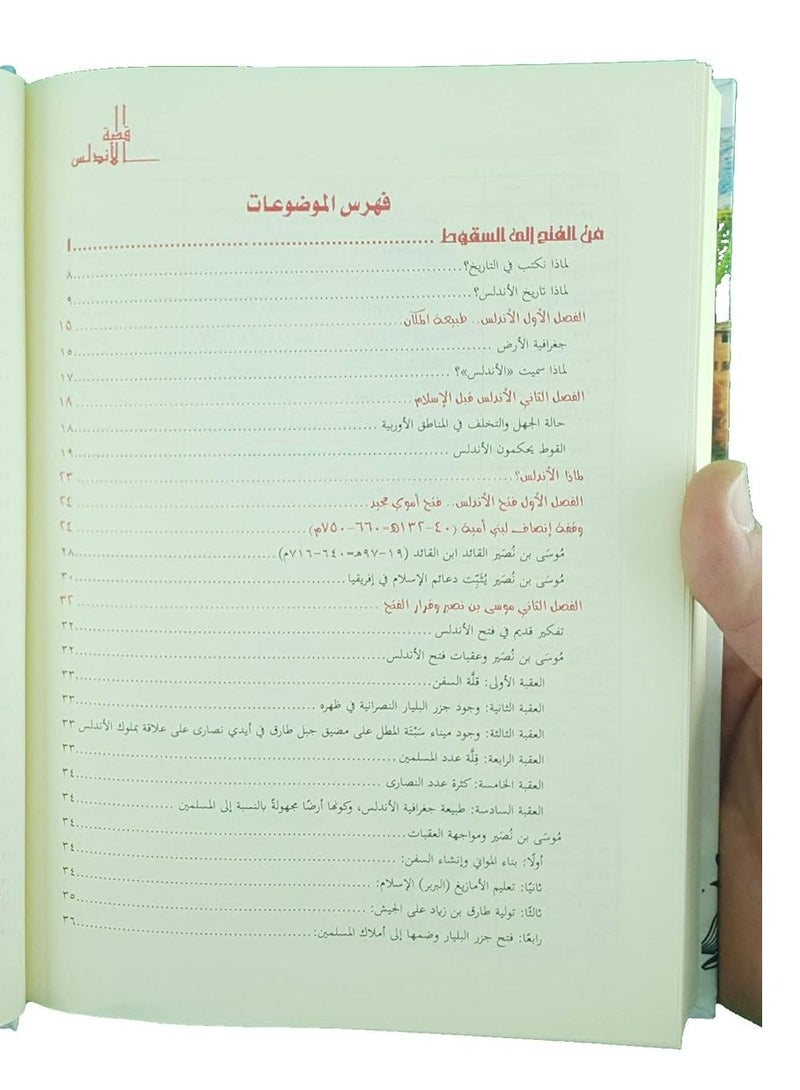 قصة
الأندلس
فهرس الموضوعات
من الفتح إلى السقوط ........ ١
لماذا نكتب في التاريخ؟ ........ ٨
لماذا تاريخ الأندلس؟ ........ ٩
الفصل الأول الأندلس.. طبيعة المكان ........ ١٥
جغرافية الأرض ........ ١٥
لماذا سميت «الأندلس»؟ ........ ١٧
الفصل الثاني الأندلس قبل الإسلام ........ ١٨
حالة الجهل والتخلف في المناطق الأوربية ........ ١٨
القوط يحكمون الأندلس ........ ١٩
لماذا الأندلس؟ ........ ٢٣
الفصل الأول فتح الأندلس.. فتح أموي مجيد ........ ٢٤
وقفة إنصاف لبني أمية (٤٠-١٣٢هـ=٦٦٠-٧٥٠م) ........ ٢٤
مُوسَى بن نُصَير القائد ابن القائد (١٩-٩٧هـ=٦٤٠-٧١٦م) ........ ٢٨
مُوسَى بن نُصَير يُثَبِّت دعائم الإسلام في إفريقيا ........ ٣٠
الفصل الثاني موسى بن نصير وقرار الفتح ........ ٣٢
تفكير قديم في فتح الأندلس ........ ٣٢
مُوسَى بن نُصَير وعقبات فتح الأندلس ........ ٣٢
العقبة الأولى: قلَّة السفن ........ ٣٣
العقبة الثانية: وجود جزر البليار النصرانية في ظهره ........ ٣٣
العقبة الثالثة: وجود ميناء سَبْتَة المطل على مضيق جبل طارق في أيدي نصارى على علاقة بملوك الأندلس ٣٣
العقبة الرابعة: قِلَّة عدد المسلمين ........ ٣٣
العقبة الخامسة: كثرة عدد النصارى ........ ٣٤
العقبة السادسة: طبيعة جغرافية الأندلس، وكونها أرضًا مجهولةً بالنسبة إلى المسلمين ........ ٣٤
مُوسَى بن نُصَير ومواجهة العقبات ........ ٣٤
أولًا: بناء المواني وإنشاء السفن: ........ ٣٤
ثانيًا: تعليم الأمازيغ (البربر) الإسلام: ........ ٣٤
ثالثًا: تولية طارق بن زياد على الجيش: ........ ٣٥
رابعًا: فتح جزر البليار وضمها إلى أملاك المسلمين: ........ ٣٦